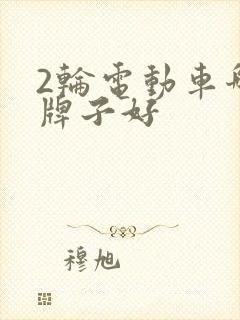 2輪電動車
牌子好
穆旭